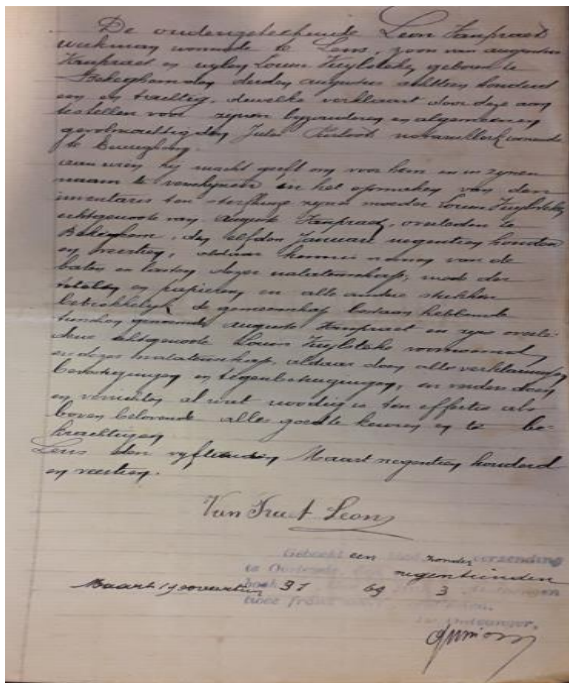 De ondergeteekende Leon Vanpraet
werkman wonende te Lens, zoon van Augustus
Vanpraet en wylen Louise Huylebeke geboren te
Bekeghem den derden augustus achttien honderd
een en tachtig, dewelke verklaart door deze aan
te stellen voor zynen byzonderen en algemeenen
gevolmachtigden Jules notarisklerk wonende
te
aan wien hy macht geeft om voor hem en in zynen
naam te verschynen in het opmaken van den
inventaris ten sterfhuize zyner moeder Louise Huylebeke
echtgenoote van Auguste Vanpraet, overleden te
Bekeghem, den elfden Januari negentien honderd
en veertien, aldaar kennis nemen van de
baten en lasten dezer nalatenschap, mede der
titelen en papieren en alle andere stukken
betrekkelyk de gemeenschap bestaan hebbende
tusschen genoemde Auguste Vanpraet en zyne overle-
dene echtgenoote Louise Huylebeke voornoemd,
en dezes nalatenschap, aldaar doen alle verklaringen
bevestigingen en tegenbevestigingen, en verder doen
en verrichten al wat noodig is ten effectie als
boven belovende alles goed te keuren en te be-
krachtigen
Lens den vyftienden Maart negentien honderd
en veertien.
Van Praet Leon
Geboekt een zonder verzending
te negentienden
Maart 1900veertien 37 69 3
De Ontvanger,